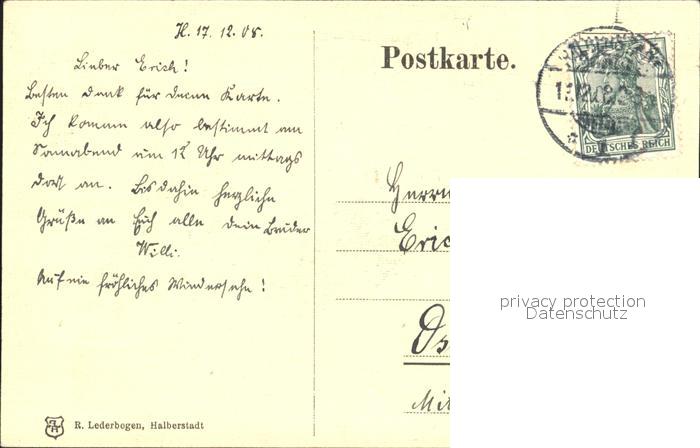 H. 17. 12. 08.
Lieber Erich!
Besten Dank für deine Karte.
Ich komme also bestimmt am
Sonnabend um 12 Uhr mittags
dort an. Bis dahin herzliche
Grüße an Euch alle dein Bruder
Willi.
Auf ein fröhliches Wiedersehn!
Postkarte.
DEUTSCHES REICH
Herrn
Eric
Os
privacy protection
Datenschutz
R. Lederbogen, Halberstadt